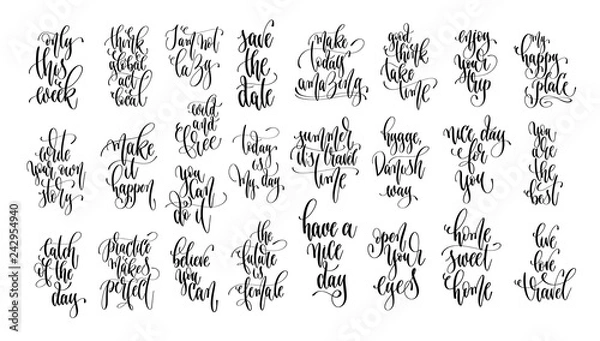 only
this
week
think
global
act
local
I am not
lazy
save
the
date
make
today
amazing
good
think
take
time
enjoy
your
trip
my
happy
place
write
your own
story
make
it
happen
wild
and
free
you
can
do it
today
is
my day
summer
it's travel
time
hygge,
Danish
way
nice day
for
you
you
are
the
best
catch
of the
day
practice
makes
perfect
believe
you
can
the
future
is
female
have a
nice
day
open
your
eyes
home
sweet
home
live
love
travel
Adobe Stock | #242954940